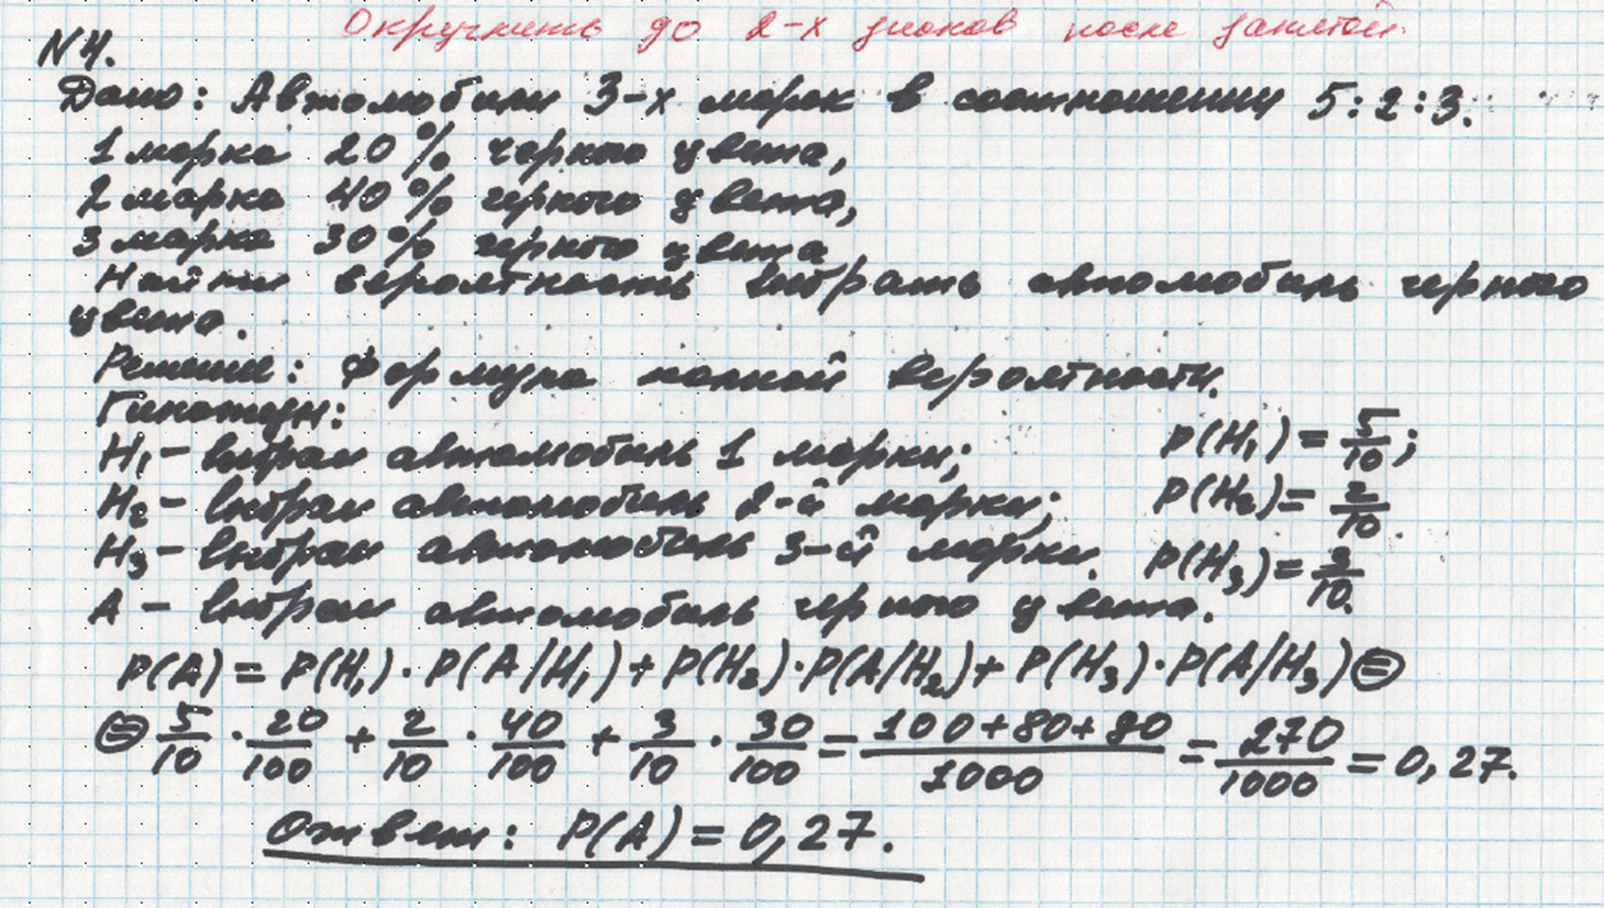 Округлить до 2-х знаков после запятой.
N4.
Дано: Автомобили 3-х марок в соотношении 5:2:3.
1 марка 20% черного цвета,
2 марка 40% черного цвета,
3 марка 30% черного цвета
Найти вероятность выбрать автомобиль черного
цвета.
Решение: Формула полной вероятности.
Гипотезы:
H₁ – выбран автомобиль 1 марки; P(H₁) = 5/10;
H₂ – выбран автомобиль 2-й марки; P(H₂) = 2/10.
H₃ – выбран автомобиль 3-й марки. P(H₃) = 3/10.
A – выбран автомобиль черного цвета.
P(A) = P(H₁) · P(A/H₁) + P(H₂) · P(A/H₂) + P(H₃) · P(A/H₃) =
= 5/10 · 20/100 + 2/10 · 40/100 + 3/10 · 30/100 = (100+80+90)/1000 = 270/1000 = 0,27.
Ответ: P(A) = 0,27.